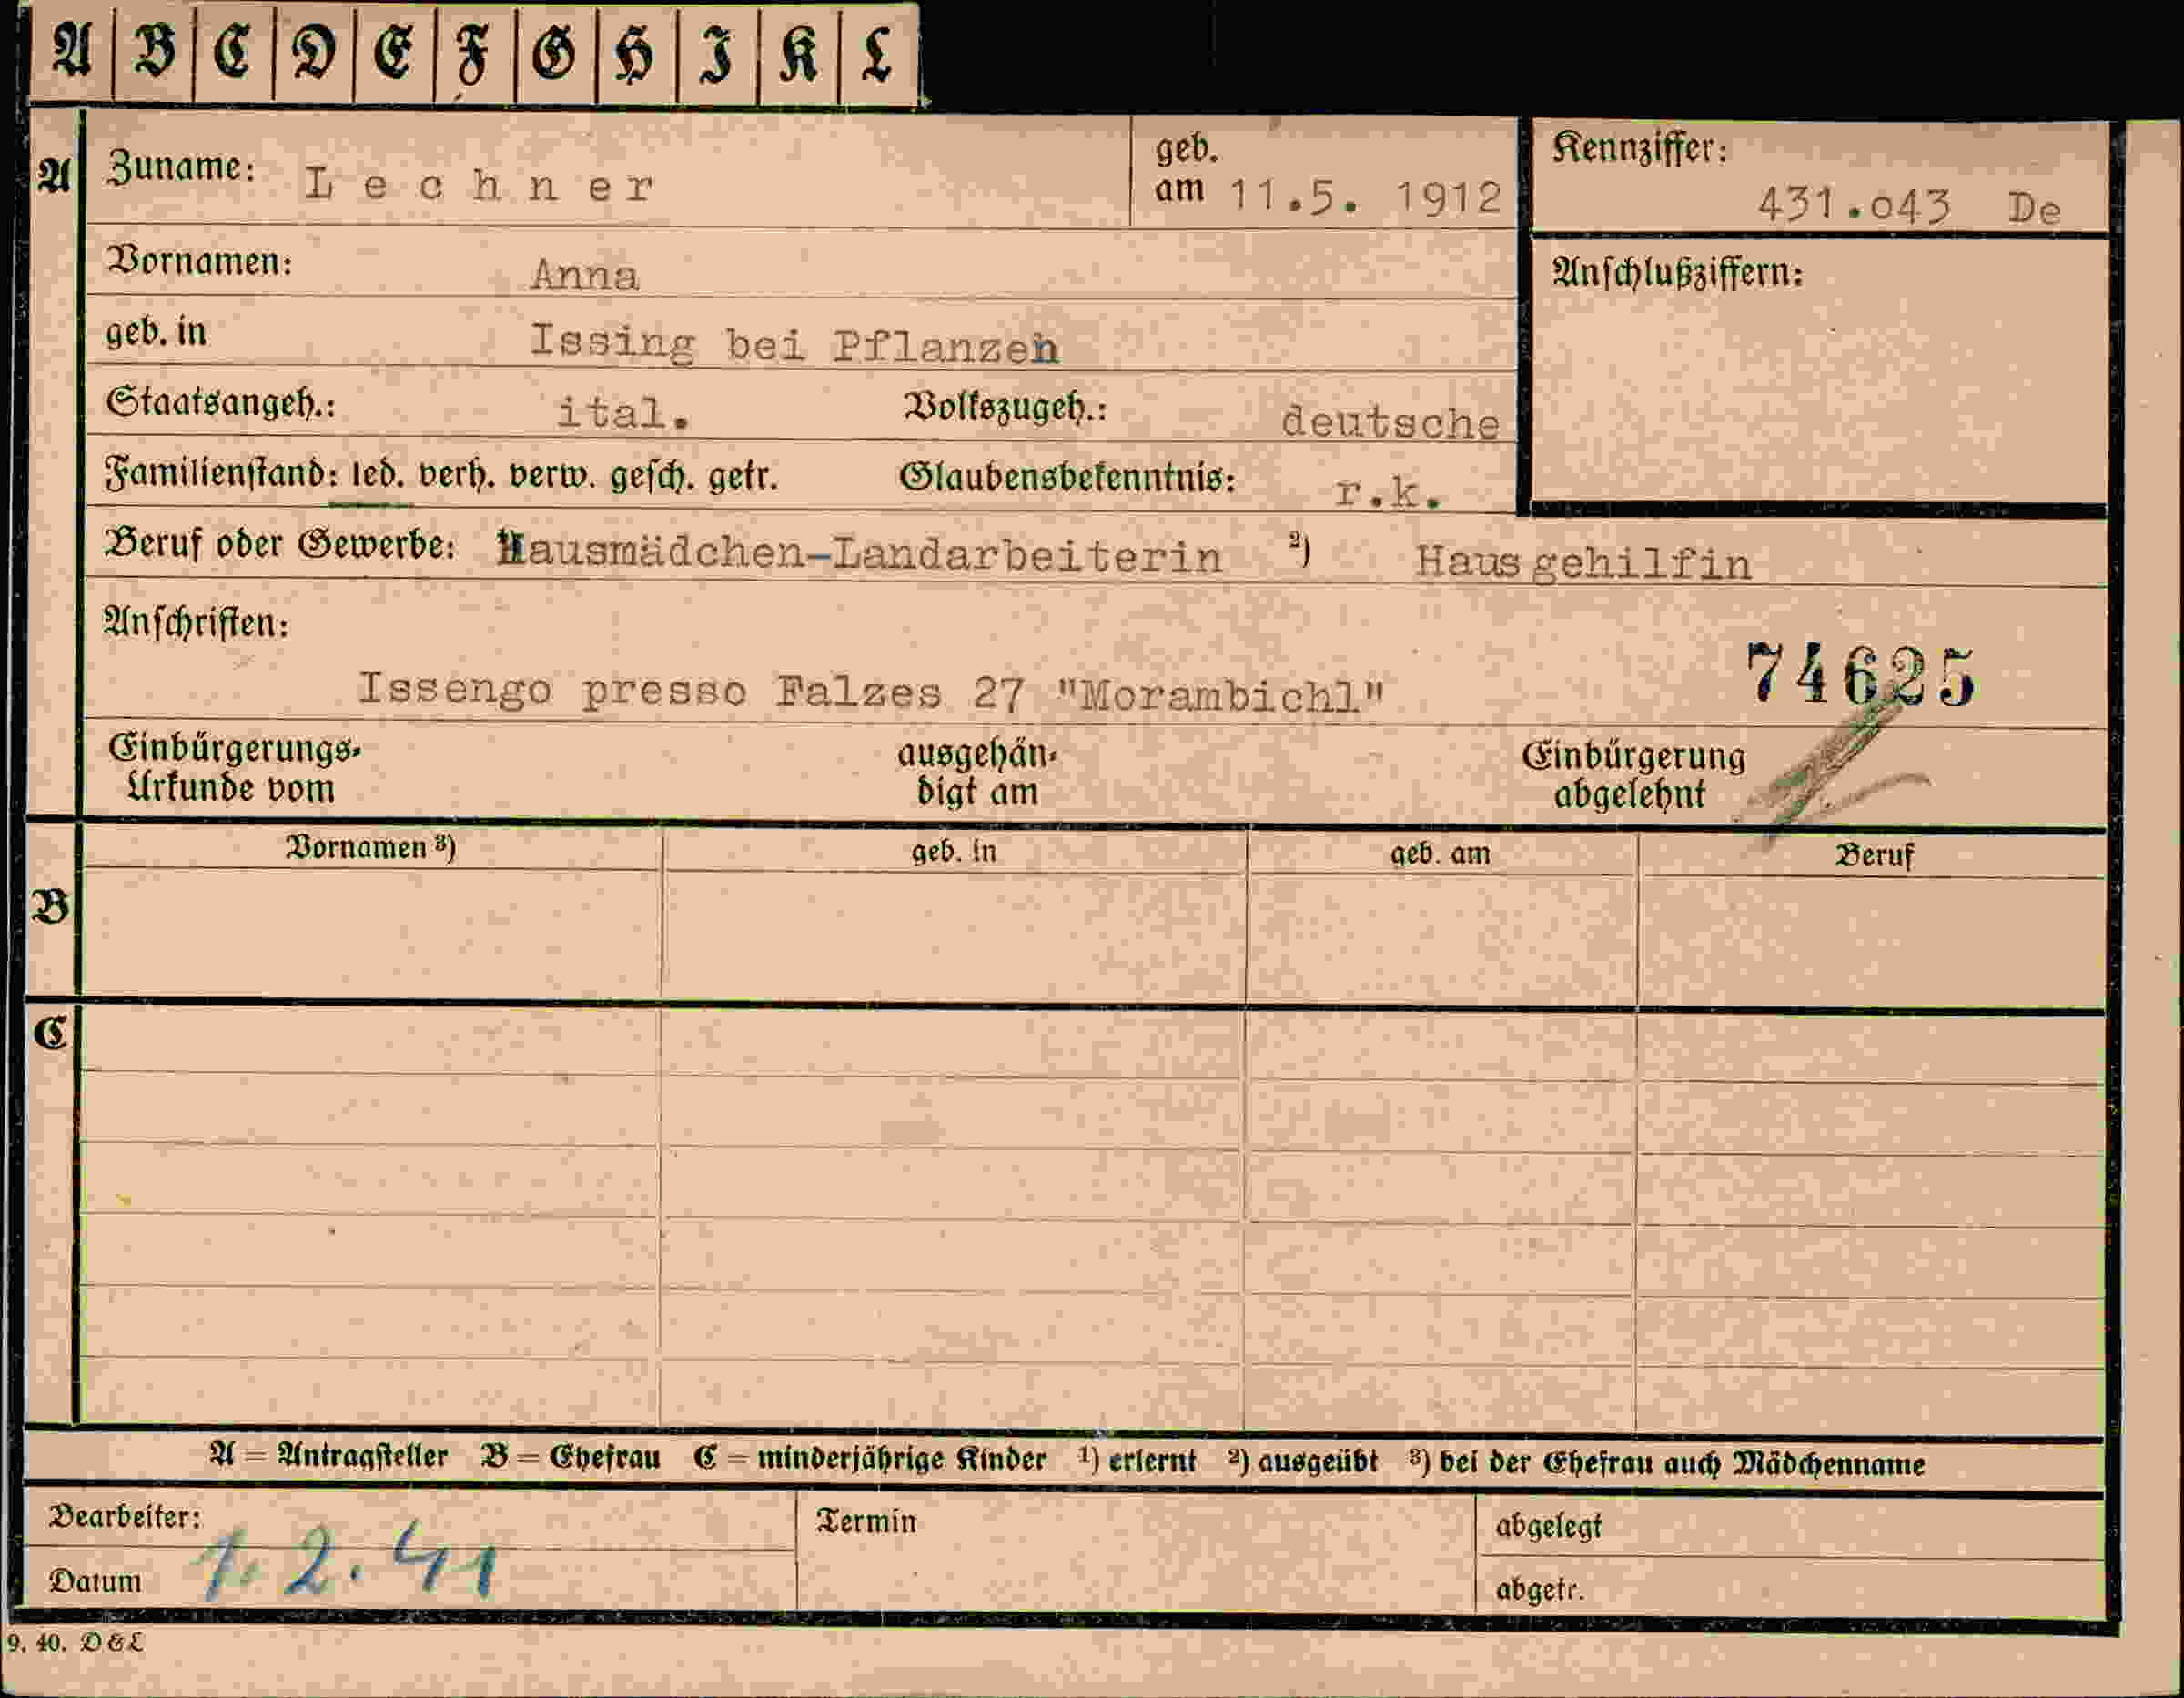 A B C D E F G H I K L
A Zuname: Lechner geb. am 11.5. 1912 Kennziffer: 431.043 De
Vornamen: Anna Anschlußziffern:
geb. in Issing bei Pflanzen
Staatsangeh.: ital. Volkszugeh.: deutsche
Familienstand: led. verh. verw. gesch. getr. Glaubensbekenntnis: r.k.
Beruf oder Gewerbe: Hausmädchen-Landarbeiterin ²) Hausgehilfin
Anschriften:
74625
Issengo presso Falzes 27 "Morambichl"
Einbürgerungs- ausgehän- Einbürgerung
Urkunde vom digt am abgelehnt
Vornamen ³) geb. in geb. am Beruf
B
C
A = Antragsteller B = Ehefrau C = minderjährige Kinder ¹) erlernt ²) ausgeübt ³) bei der Ehefrau auch Mädchenname
Bearbeiter: Termin abgelegt
Datum 1.2.41 abgetr.
9. 40. D&L